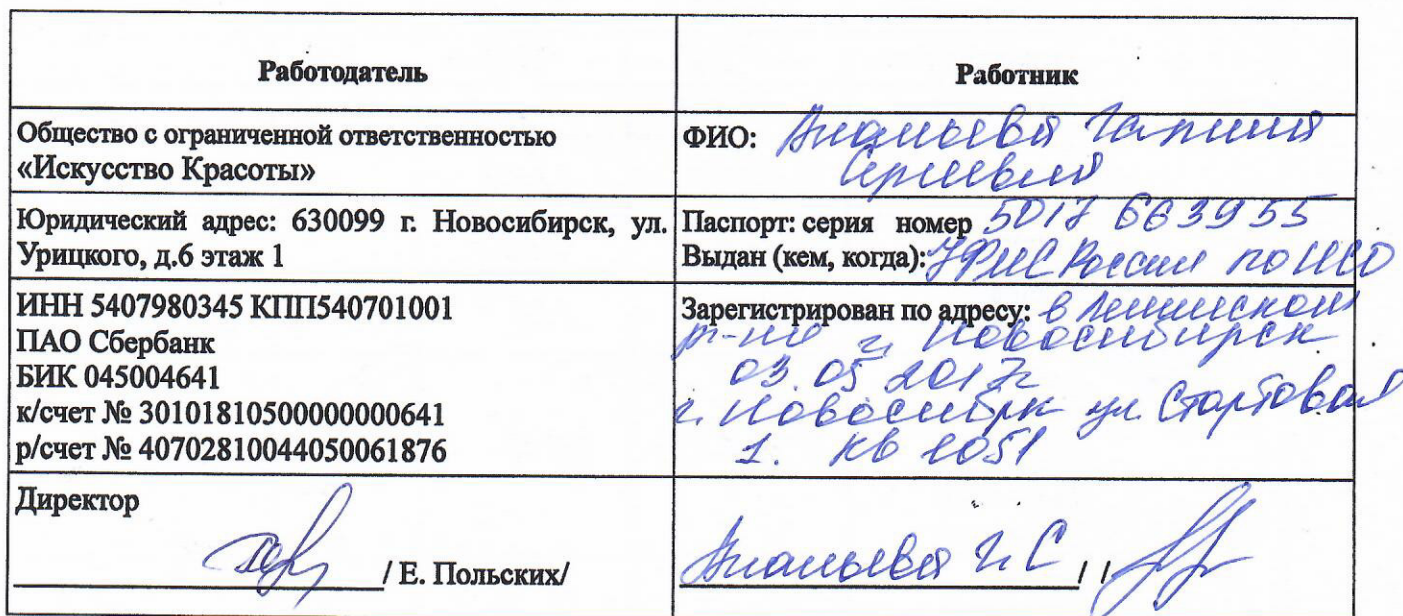 Работодатель
Работник
Общество с ограниченной ответственностью
«Искусство Красоты»
ФИО: Ананьева Галина
Сергеевна
Юридический адрес: 630099 г. Новосибирск, ул.
Урицкого, д.6 этаж 1
Паспорт: серия номер 5017 663955
Выдан (кем, когда): УФМС России по НСО
ИНН 5407980345 КПП540701001
ПАО Сбербанк
БИК 045004641
к/счет № 30101810500000000641
р/счет № 40702810044050061876
Зарегистрирован по адресу: в Ленинском
р-не г. Новосибирск
03.05.2017г
г. Новосибрк ул. Стартовая
1. кв 1051
Директор
/ Е. Польских/
Ананьева Г. С / /